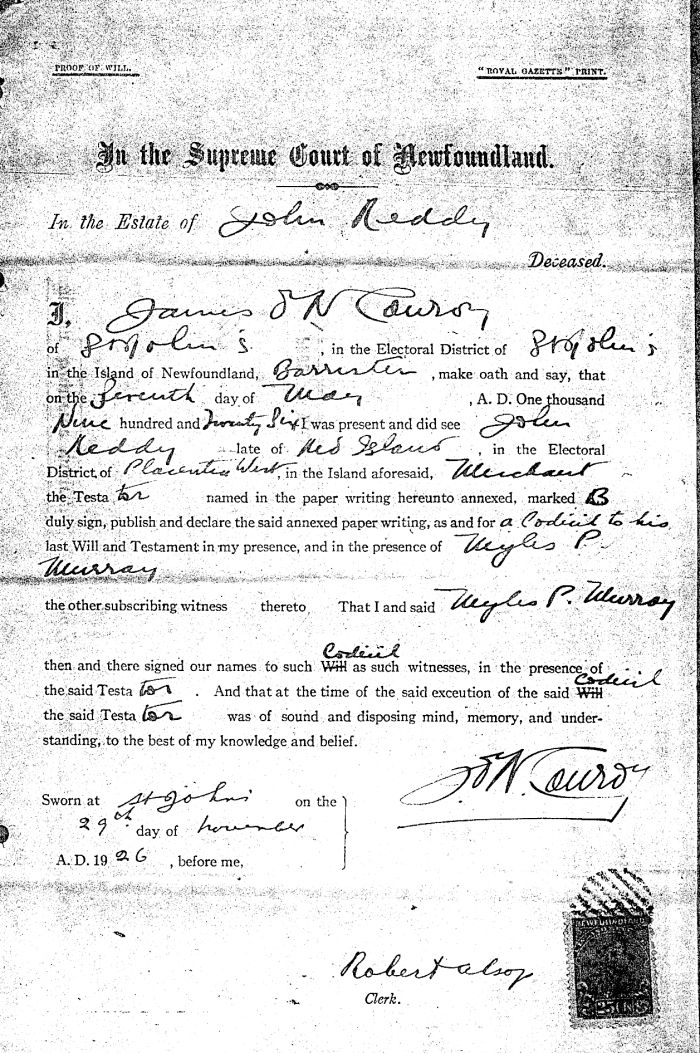 PROOF OF WILL.
"ROYAL GAZETTE" PRINT.
In the Supreme Court of Newfoundland.
In the Estate of John Reddy
Deceased.
I, James E N Conroy
of St John's, in the Electoral District of St John's
in the Island of Newfoundland, Barrister, make oath and say, that
on the Seventh day of May, A. D. One thousand
Nine hundred and Twenty Six I was present and did see John
Reddy late of Red Island, in the Electoral
District of Placentia West, in the Island aforesaid, Merchant
the Testator named in the paper writing hereunto annexed, marked B
duly sign, publish and declare the said annexed paper writing, as and for a Codicil to his
last Will and Testament in my presence, and in the presence of Myles P.
Murray
the other subscribing witness thereto That I and said Myles P. Murray
Codicil
then and there signed our names to such Will as such witnesses, in the presence of
Codicil
the said Testator. And that at the time of the said exceution of the said Will
the said Testator was of sound and disposing mind, memory, and under-
standing, to the best of my knowledge and belief.
J. E N. Conroy
Sworn at St Johns on the
29th day of November
A. D. 1926, before me,
Robert Alsop
Clerk.
NEWFOUNDLAND
25 CENTS